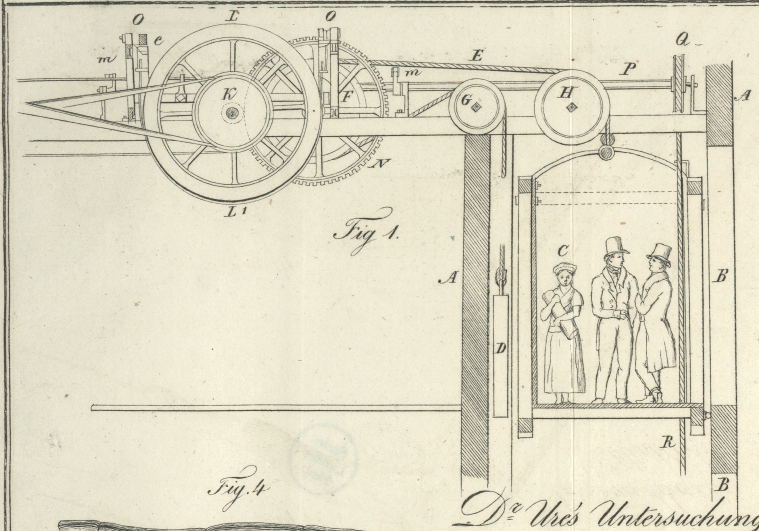 O I O E P Q
e m m
K F G H A
N
L1
Fig 1.
C
A B
D
R
Fig. 4 B
Dr Ure's Untersuchung